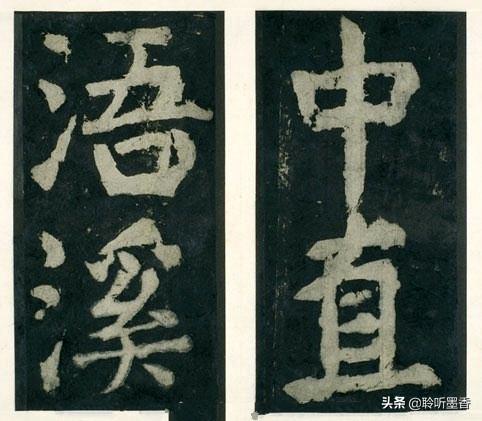 中直
浯溪
头条 @聆听墨香